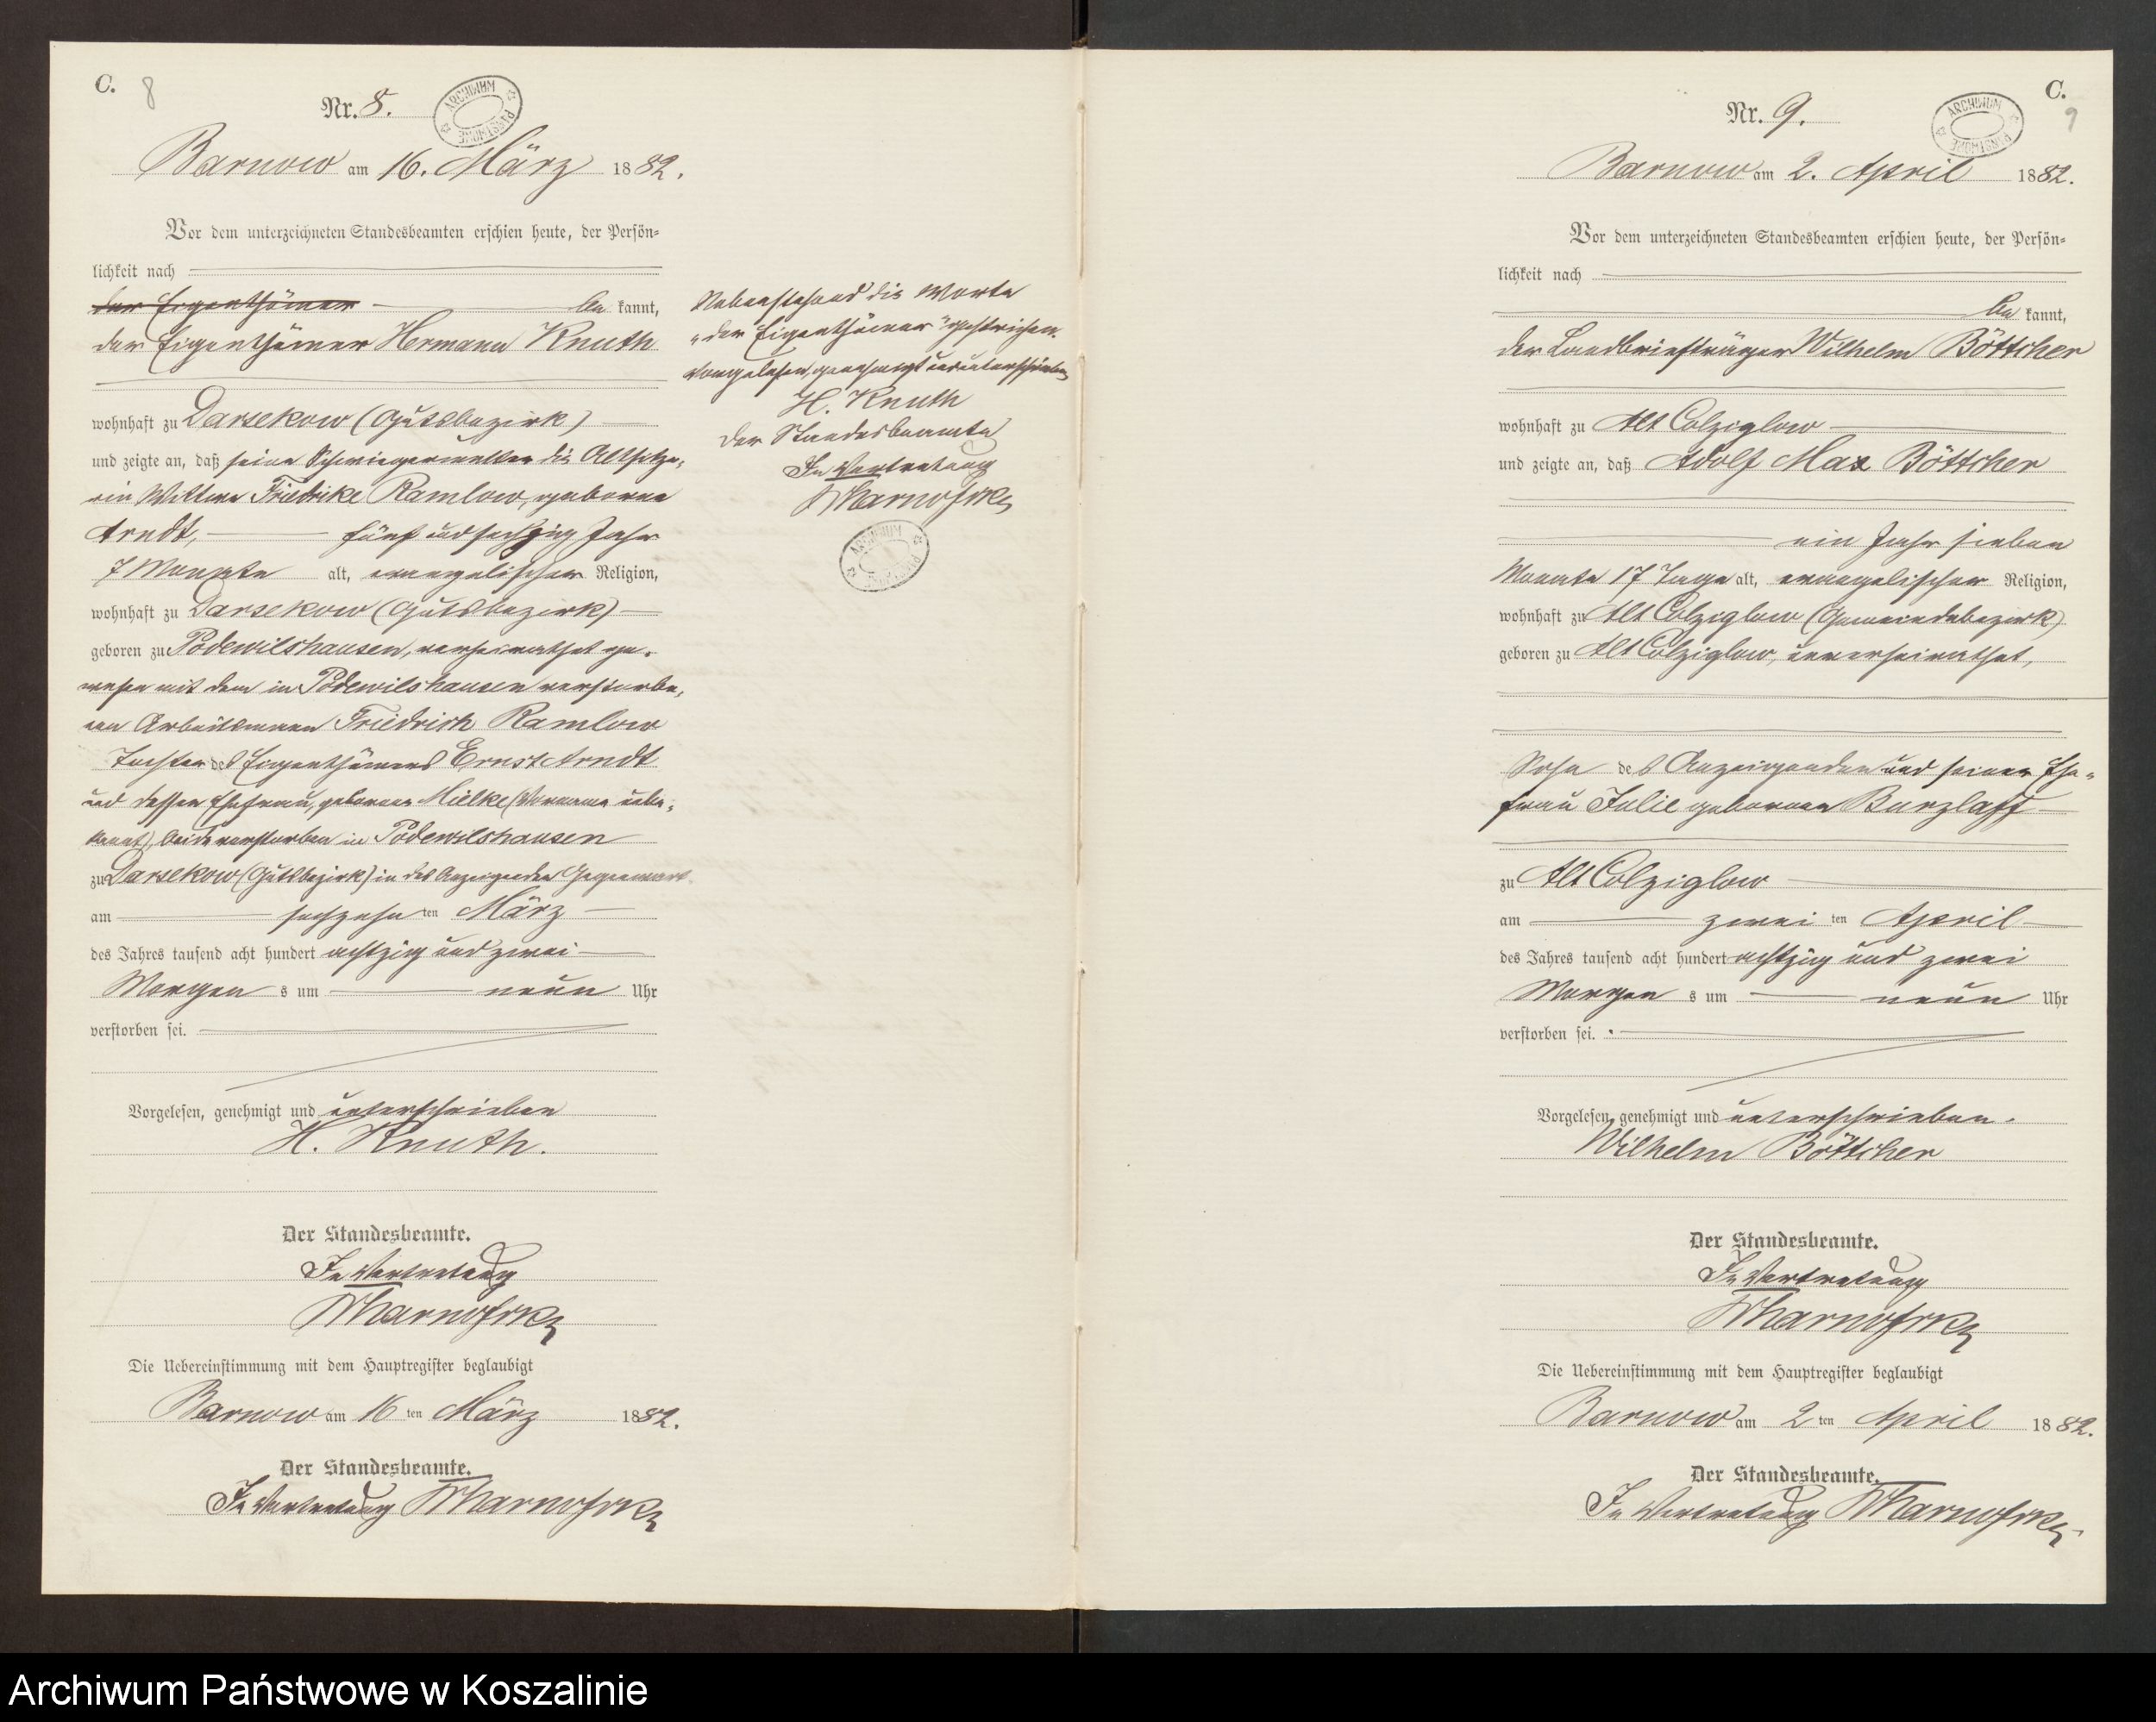 C. 8
Nr. 8.
ARCHIWUM PAŃSTWOWE
Barnow am 16. März 1882.
Vor dem unterzeichneten Standesbeamten erschien heute, der Persön-
lichkeit nach
der Eigenthümer be kannt,
der Eigenthümer Hermann Knuth
wohnhaft zu Darsekow (Gutsbezirk)
und zeigte an, daß seine Schwiegermutter die Altsitze-
rin Wittwe Friedrike Ramlow, geborene
Arndt, fünf und sechzig Jahr
7 Monate alt, evangelischer Religion,
wohnhaft zu Darsekow (Gutsbezirk)
geboren zu Podewilshausen, verheirathet ge-
wesen mit dem in Podewilshausen verstorbe-
nen Arbeitsmann Friedrich Ramlow
Tochter des Eigenthümers Ernst Arndt
und dessen Ehefrau, geborenen Mielke (Vorname unbe-
kannt), beide verstorben in Podewilshausen
zu Darsekow (Gutsbezirk) in des Anzeigenden Gegenwart
am sechzehn ten März
des Jahres tausend acht hundert achtzig und zwei
Morgen s um neun Uhr
verstorben sei.
Vorgelesen, genehmigt und unterschrieben
H. Knuth.
Der Standesbeamte.
In Vertretung
Die Uebereinstimmung mit dem Hauptregister beglaubigt
Barnow am 16 ten März 1882.
Der Standesbeamte.
In Vertretung
Nebenstehend die Worte
„der Eigenthümer" gestrichen.
Vorgelesen, genehmigt und unterschrieben
H. Knuth
Der Standesbeamte
In Vertretung
ARCHIWUM PAŃSTWOWE
C.
9
Nr. 9.
ARCHIWUM PAŃSTWOWE
Barnow am 2. April 1882.
Vor dem unterzeichneten Standesbeamten erschien heute, der Persön-
lichkeit nach
be kannt,
der Landbriefträger Wilhelm Böttcher
wohnhaft zu Alt Colziglow
und zeigte an, daß Adolf Max Böttcher
ein Jahr sieben
Monate 17 Tage alt, evangelischer Religion,
wohnhaft zu Alt Colziglow (Gemeindebezirk)
geboren zu Alt Colziglow, unverheirathet,
Sohn des Anzeigenden und seiner Ehe-
frau Julie geborenen Burzlaff
zu Alt Colziglow
am zwei ten April
des Jahres tausend acht hundert achtzig und zwei
Morgen s um neun Uhr
verstorben sei.
Vorgelesen, genehmigt und unterschrieben.
Wilhelm Böttcher
Der Standesbeamte.
In Vertretung
Die Uebereinstimmung mit dem Hauptregister beglaubigt
Barnow am 2 ten April 1882.
Der Standesbeamte.
In Vertretung
Archiwum Państwowe w Koszalinie